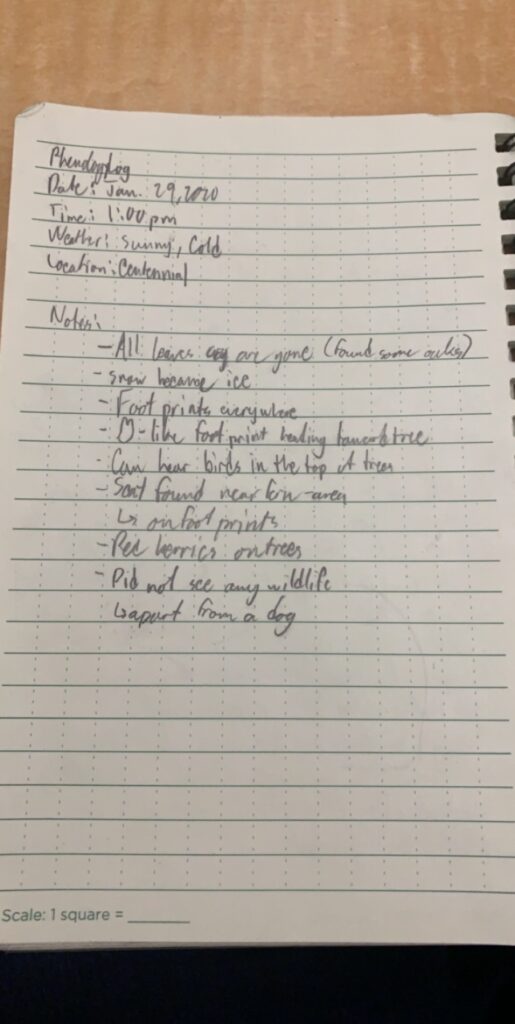 Phenology log
Date: Jan. 29, 2020
Time: 1:00 pm
Weather: sunny, Cold
Location: Centennial
Notes:
- All leaves are gone (found some)
- snow became ice
- Foot prints everywhere
- like foot print heading toward tree
- Can hear birds in the top of trees
- Scat found near area
↳ on foot prints
- Red berries on trees
- Did not see any wildlife
↳ apart from a dog
Scale: 1 square = ________